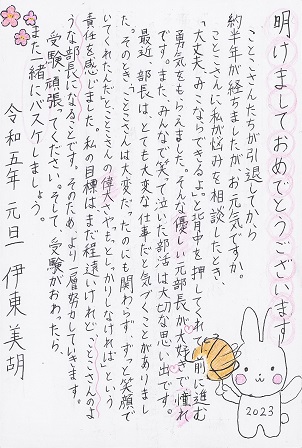 明けましておめでとうございます
ことこさんたちが引退してから
約半年が経ちましたが、お元気ですか。
ことこさんに私が悩みを相談したとき
「大丈夫、みこならできるよ」と背中を押してくれて前に進む
勇気をもらえました。そんな優しい元部長が大好きで憧れ
です。また、みんなで笑って泣いた部活は大切な思い出です。
最近、部長は、とても大変な仕事だと気づくことがありまし
た。そのとき、「ことこさんは大変だったのにも関わらず、ずっと笑顔で
いてくれたんだ」とことこさんの偉大さや「もっとしっかりしなければ」という
責任を感じました。私の目標はまだ程遠いけれど「ことこさんのよ
うな部長」になることです。そのため、より一層努力していきます。
受験頑張ってください。そして、受験がおわったら、
また一緒にバスケしましょう。
令和五年 元旦 伊東美胡
2023